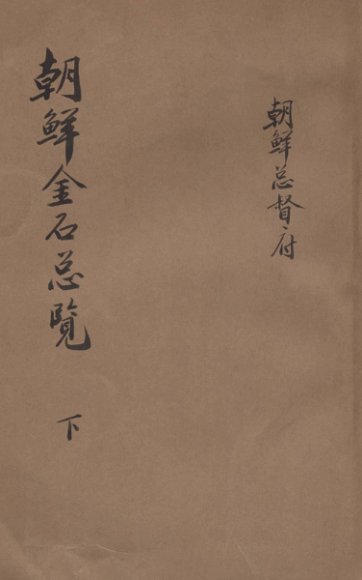 朝鮮总督府
朝鮮金石总覧
下